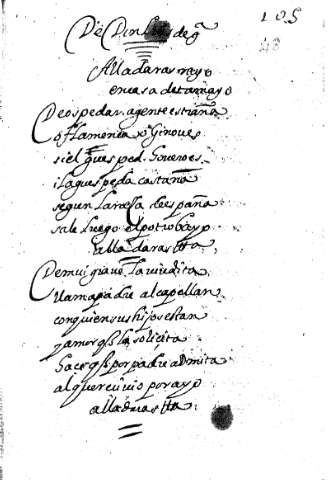 105
43
De Don Luis de gª
Alla daras rayo
en casa de tamayo
De ospedar a gente estraña
o flamenca o ginoves
si el guesped overo es
i la guespeda castaña
segun la raça de españa
sale luego el potro bayo
alla daras etta
De mui graue la viudita
llama padre al capellan
con quien sus hijos estan
y amor q̃ la soliçita
haçe q̃ por padre admita
al que reciuio por ayo
alla daras etta